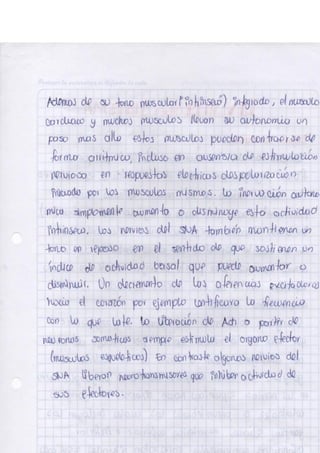 Además de su tono muscular ("intrínseco") integrado, el musculo
cardiaco y muchos musculos llevan su autonomia un
paso mas alla estos musculos pueden contraerse de
forma arritmica, incluso en ausencia de estimulación
nerviosa en respuestas electricas despolarización
iniciada por los musculos mismos. la inervación autono
mica simplemente aumenta o disminuye esta actividad
intrinseca. los nervios del SNA también mantienen un
tono en reposo en el sentido de que sostienen un
índice de actividad basal que puede aumentar o
disminuir. Un decremento de las aferencias excitadoras
hacia el corazón por ejemplo lentificara la frecuencia
con la que late. la liberación de Ach a partir de
neuronas somaticas siempre estimula el organo efector
(musculos esqueleticos) En contraste algunos nervios del
SNA liberan neurotransmisores que inhiben actividad de
sus efectores.